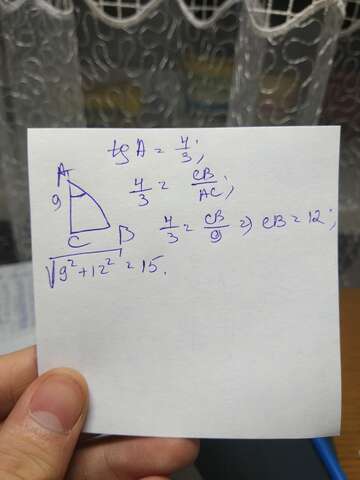 tg A = 4/3;
A
4/3 = CB/AC;
9
C B
4/3 = CB/9 => CB = 12;
√9² + 12² = 15.